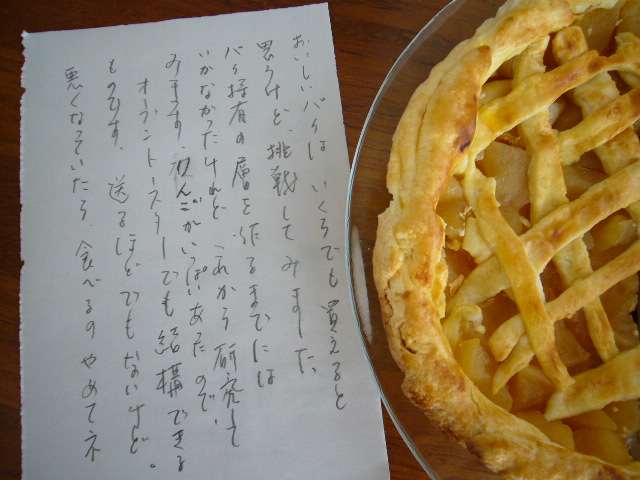 おいしいパイは いくらでも買えると
思うけど、挑戦してみました。
パイ特有の層を作るまでには
いかなかったけれど、これから研究して
みます。りんごがいっぱいあったので、
オーブントースターでも結構できる
ものです。送るほどでもないけど。
悪くなっていたら、食べるのやめてネ